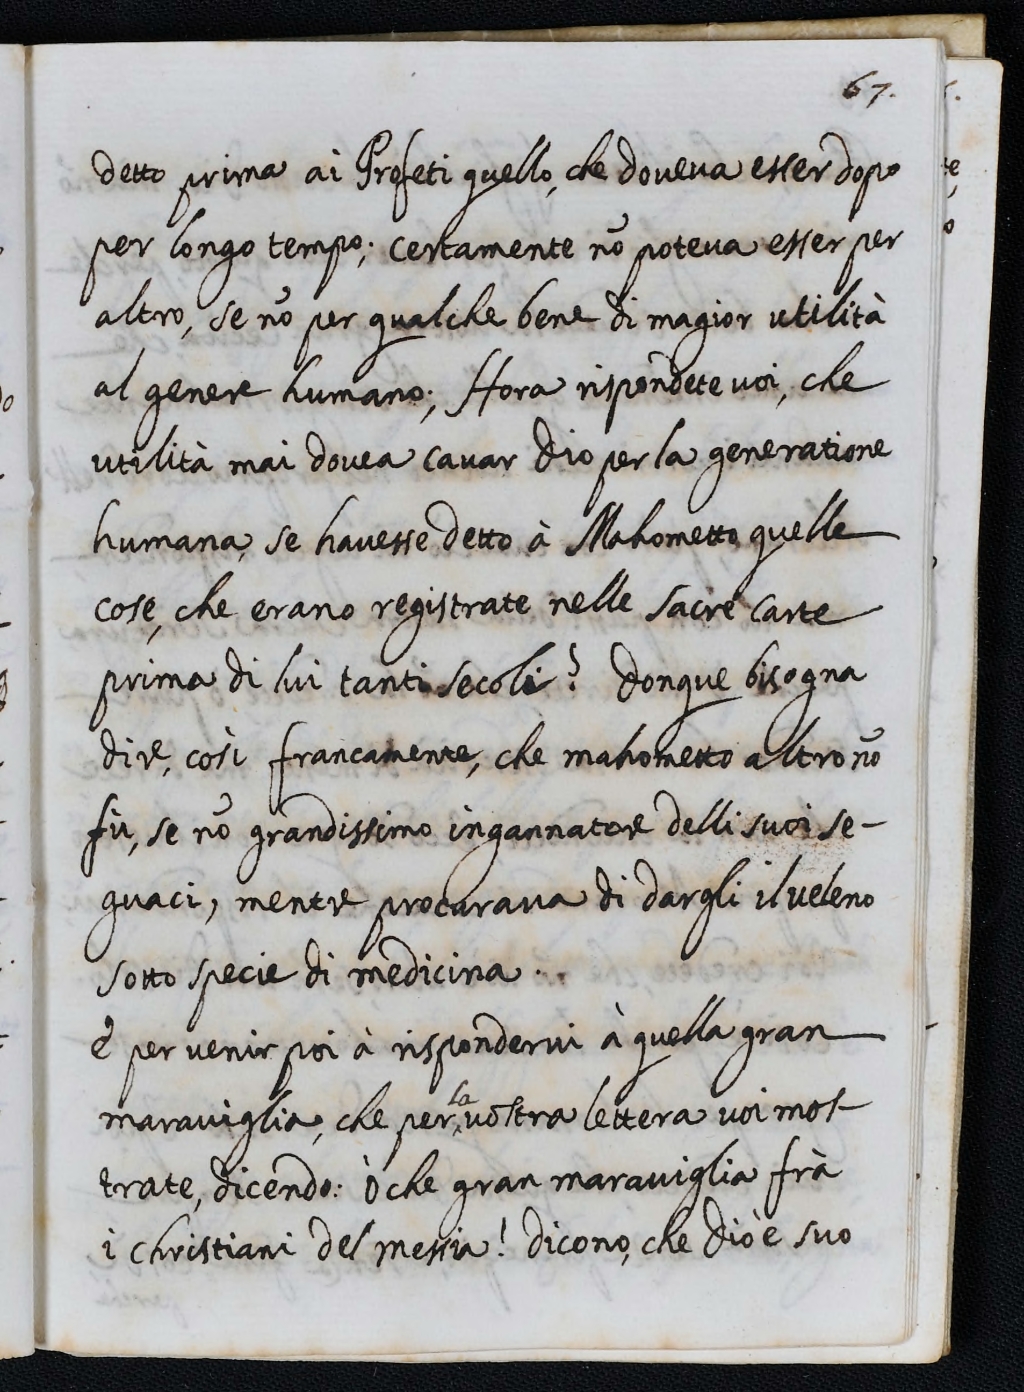 67.
detto prima ai Profeti quello, che doveva esser dopo
per longo tempo; certamente nõ poteva esser per
altro, se nõ per qualche bene di magior utilità
al genere humano; Hora rispondete voi, che
utilità mai dovea cavar Dio per la generatione
humana, se havesse detto à Mahometto quelle
cose, che erano registrate nelle sacre carte
prima di lui tanti secoli? Donque bisogna
dire, così francamente, che mahometto altro nõ
fù, se nõ grandissimo ingannatore delli suoi se-
guaci, mentre procurava di dargli il veleno
sotto specie di medicina.
E per venir poi à rispondervi à quella gran
maraviglia, che per la vostra lettera voi mos-
trate, dicendo: ò che gran maraviglia frà
i christiani del messia! dicono, che Dio è suo